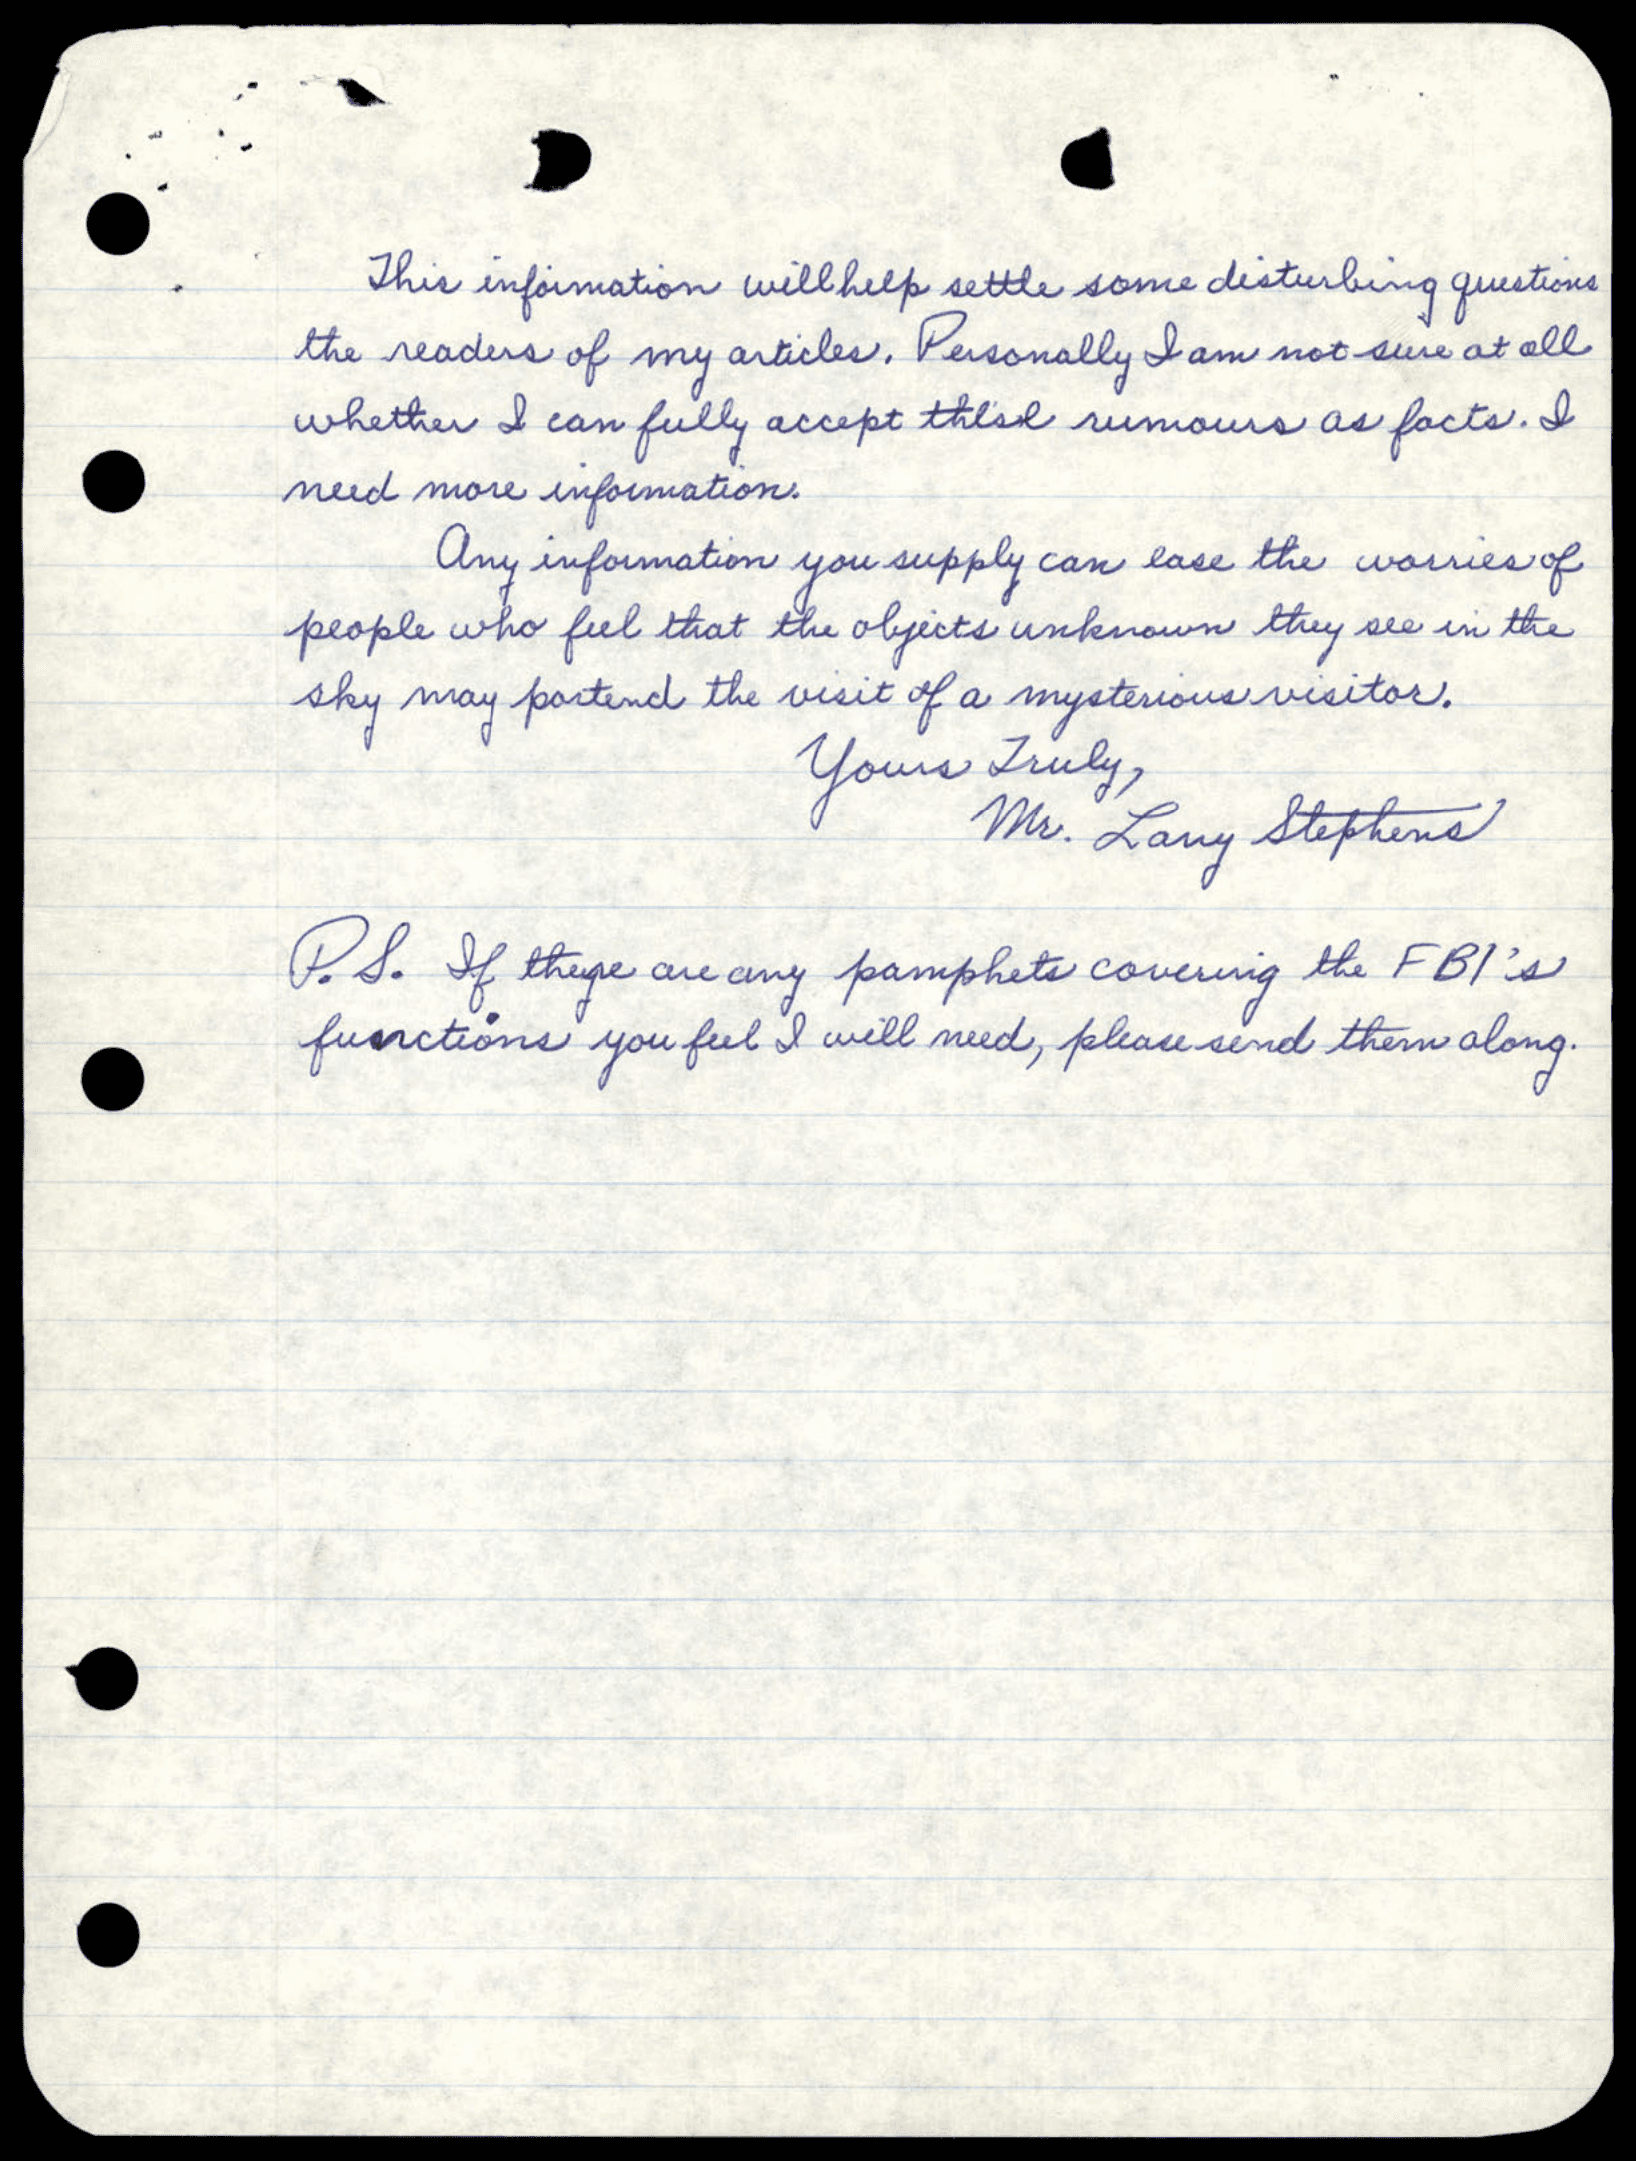 This information will help settle some disturbing questions
the readers of my articles. Personally I am not sure at all
whether I can fully accept these rumours as facts. I
need more information.
Any information you supply can ease the worries of
people who feel that the objects unknown they see in the
sky may portend the visit of a mysterious visitor.
Yours Truly,
Mr. Larry Stephens
P.S. If there are any pamphets covering the FBI's
functions you feel I will need, please send them along.